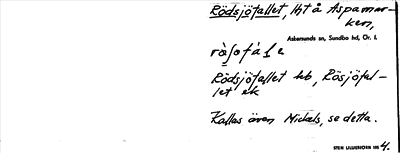 Rödsjöfallet, lht å Aspamar-
ken,
Askersunds sn, Sundbo hd, Ör. l.
Rödsjöfallet hb, Rösjöfal-
let ek
Kallas även Nickels, se detta.
STEN LILLIEHORN HB 4.